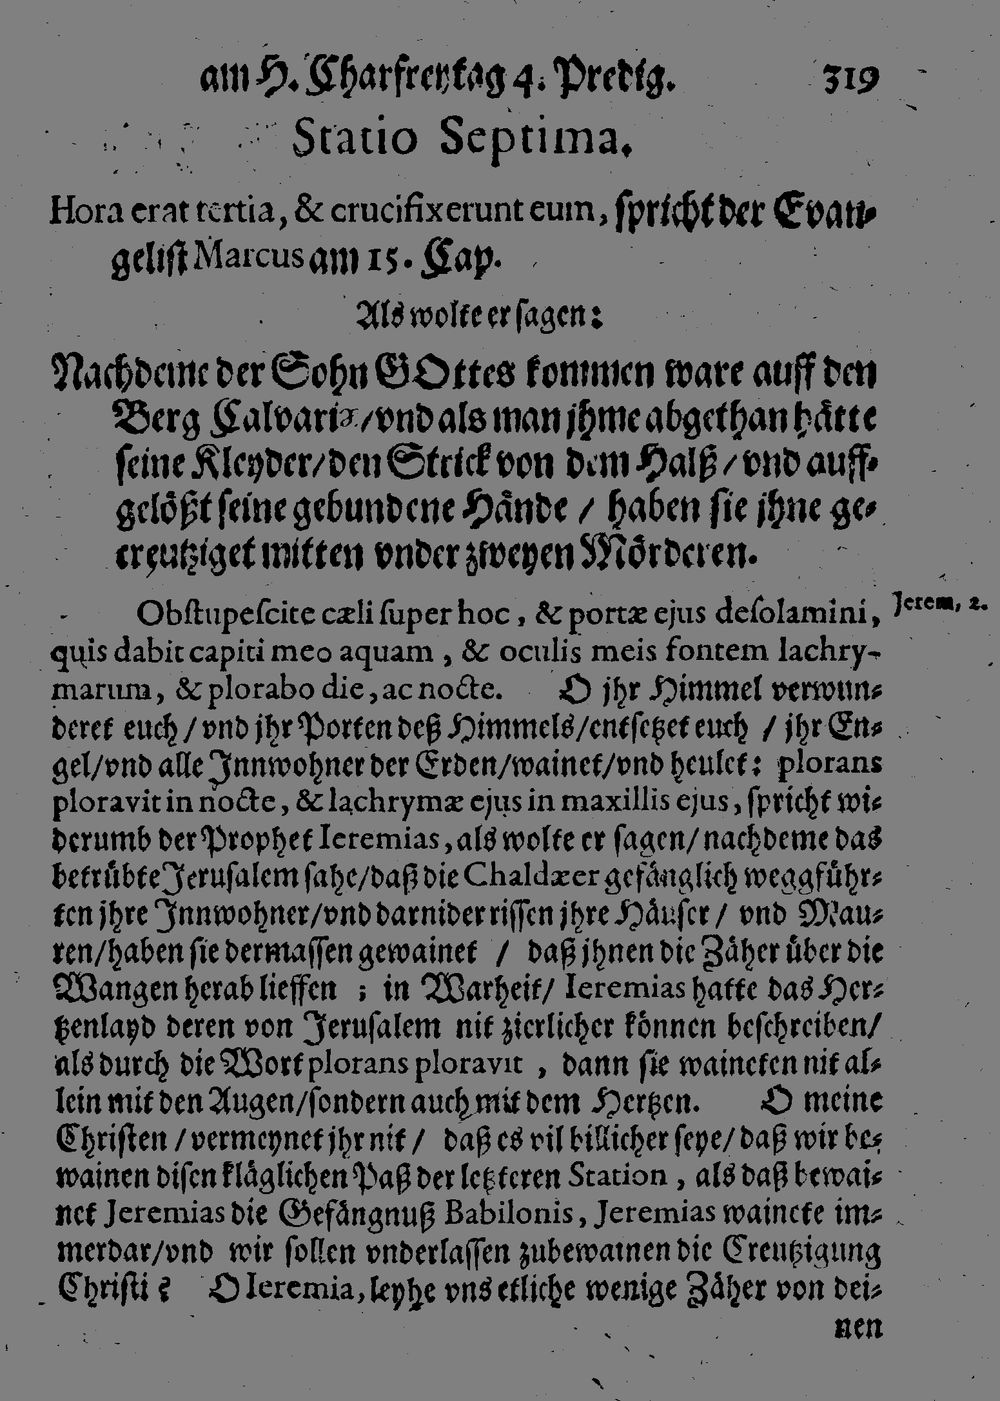 am H. Charfreytag 4. Predig. 319
Statio Septima.
Hora erat tertia, & crucifixerunt eum, spricht der Evan-
gelist Marcus am 15. Cap.
Als wolte er sagen:
Nachdeme der Sohn GOttes kommen ware auff den
Berg Calvariæ/vnd als man jhme abgethan hätte
seine Kleyder/den Strick von dem Halß/vnd auff-
gelößt seine gebundene Hände / haben sie jhne ge-
creutziget mitten vnder zweyen Mörderen.
Obstupescite cæli super hoc, & portæ ejus desolamini, Jerem, 2.
quis dabit capiti meo aquam, & oculis meis fontem lachry-
marum, & plorabo die, ac nocte. O jhr Himmel verwun-
deret euch/vnd jhr Porten deß Himmels/entsetzet euch / jhr En-
gel/vnd alle Jnnwohner der Erden/wainet/vnd heulet: plorans
ploravit in nocte, & lachrymæ ejus in maxillis ejus, spricht wi-
derumb der Prophet Ieremias, als wolte er sagen/nachdeme das
betrübte Jerusalem sahe/daß die Chaldæer gefänglich weggführ-
ten jhre Jnnwohner/vnd darnider rissen jhre Häuser/ vnd Mau-
ren/haben sie dermassen gewainet / daß jhnen die Zäher über die
Wangen herab lieffen ; in Warheit/ Ieremias hatte das Her-
tzenlayd deren von Jerusalem nit zierlicher können beschreiben/
als durch die Wort plorans ploravit , dann sie waineten nit al-
lein mit den Augen/sondern auch mit dem Hertzen. O meine
Christen /vermeynet jhr nit / daß es vil billicher seye/daß wir be-
wainen disen kläglichen Paß der letzteren Station , als daß bewai-
net Jeremias die Gefängnuß Babilonis, Jeremias wainete im-
merdar/vnd wir sollen vnderlassen zubewainen die Creutzigung
Christi? O Ieremia, leyhe vns etliche wenige Zäher von dei-
nen